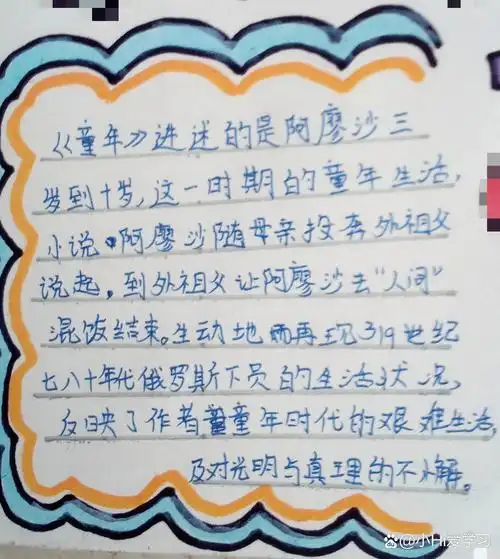 《童年》进述的是阿廖沙三
岁到十岁,这一时期的童年生活,
小说 阿廖沙随母亲投奔外祖父
说起,到外祖父让阿廖沙去"人间"
混饭结束。生动地 再现了19世纪
七八十年代俄罗斯下员的生活状况,
反映了作者童童年时代的艰难生活,
及对光明与真理的不小解。
小Hi爱学习